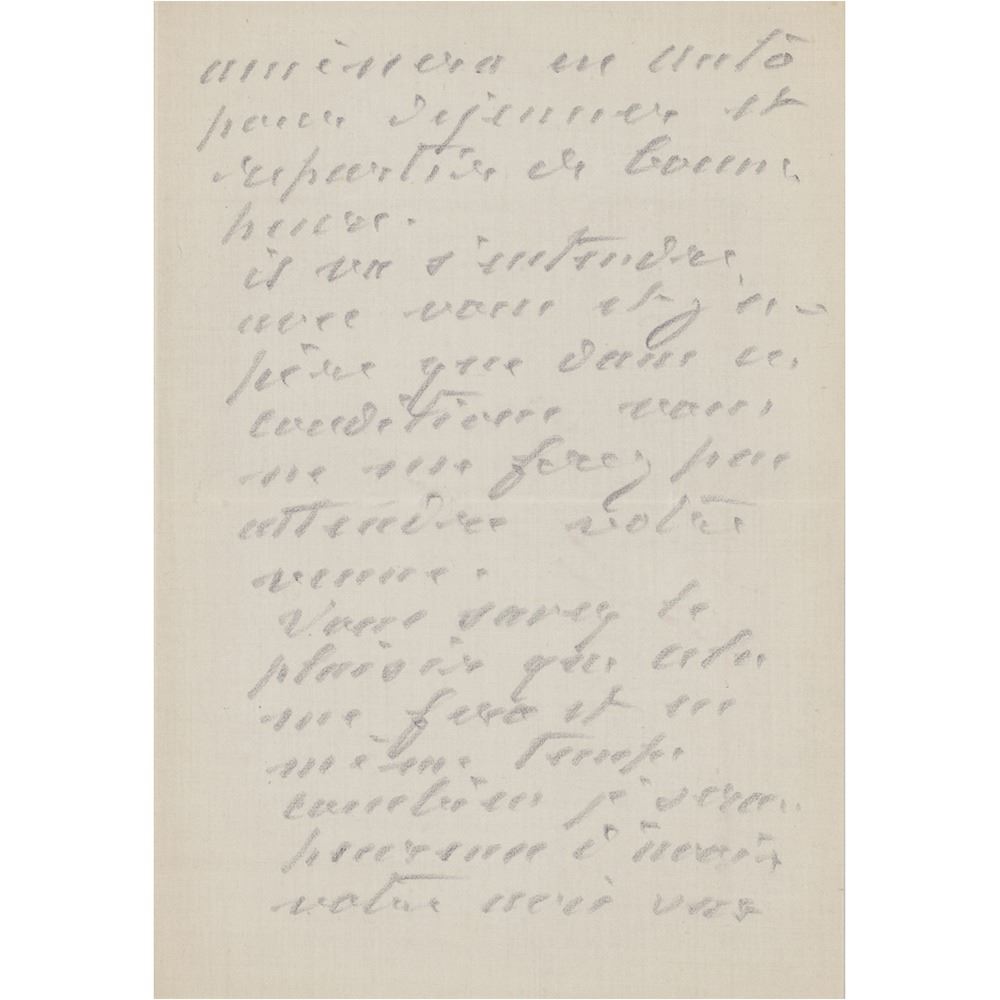 amènera en auto
pour déjeuner et
repartir de bonne
heure.
il va s'entendre
avec vous et j'es-
père que dans ces
conditions vous
ne me ferez pas
attendre votre
venue.
Vous savez le
plaisir que cela
me fera et en
même temps
combien je serai
heureux d'avoir
votre avis vos